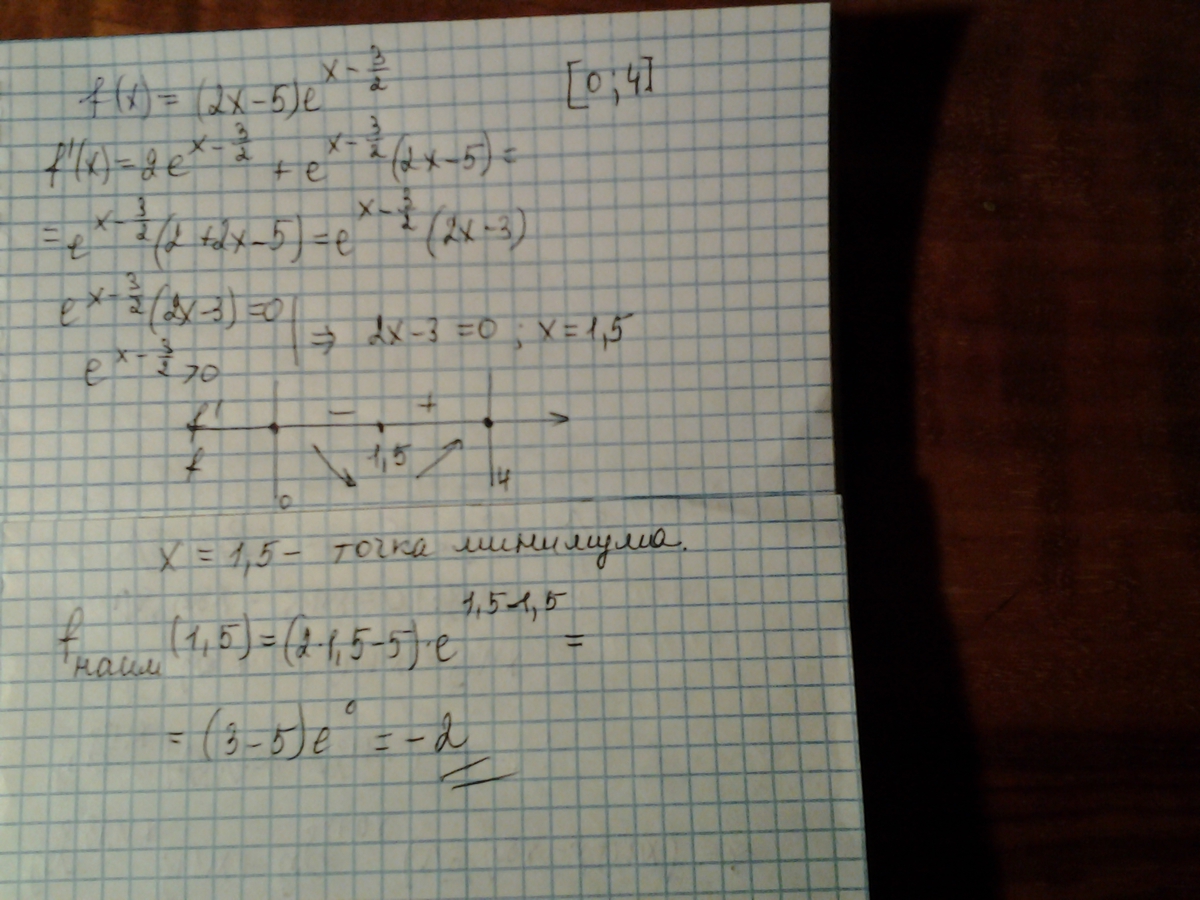 f(x) = (2x-5)e^{x-\frac{3}{2}} [0;4]
f'(x) = 2e^{x-\frac{3}{2}} + e^{x-\frac{3}{2}}(2x-5) =
= e^{x-\frac{3}{2}}(2+2x-5) = e^{x-\frac{3}{2}}(2x-3)
e^{x-\frac{3}{2}}(2x-3) = 0 | ⇒ 2x-3 = 0 ; x = 1,5
e^{x-\frac{3}{2}} > 0
f' − +
f 1,5
0 4
x = 1,5 - точка минимума.
f_{наим}(1,5) = (2·1,5-5)·e^{1,5-1,5} =
= (3-5)e^{0} = -2